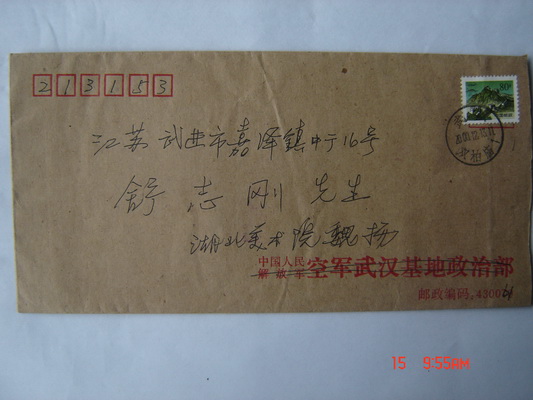 213153
江苏武进市嘉泽镇中于16号
舒志刚先生
湖北美术院魏扬
中国人民
解放军 空军武汉基地政治部
邮政编码,430061
15 9:55AM